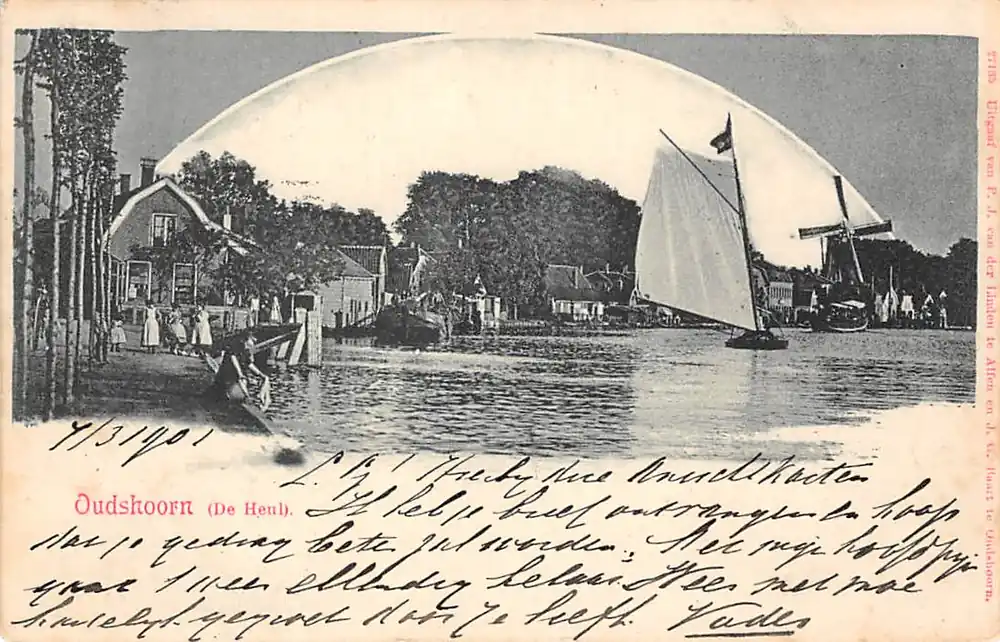 7/3 1901
L. Z! Hierbij drie Ansichtkaarten
Oudshoorn (De Heul).
Ik heb je brief ontvangen en hoop
dat je gedrag beter zal worden. Met mijn hoofdpijn
gaat 't weer ellendig Wees met moe
hartelijk gegroet door je liefh. Vader
27135 Uitgaaf van P. J. van der Linden te Alfen en J. C. Baart te Oudshoorn.